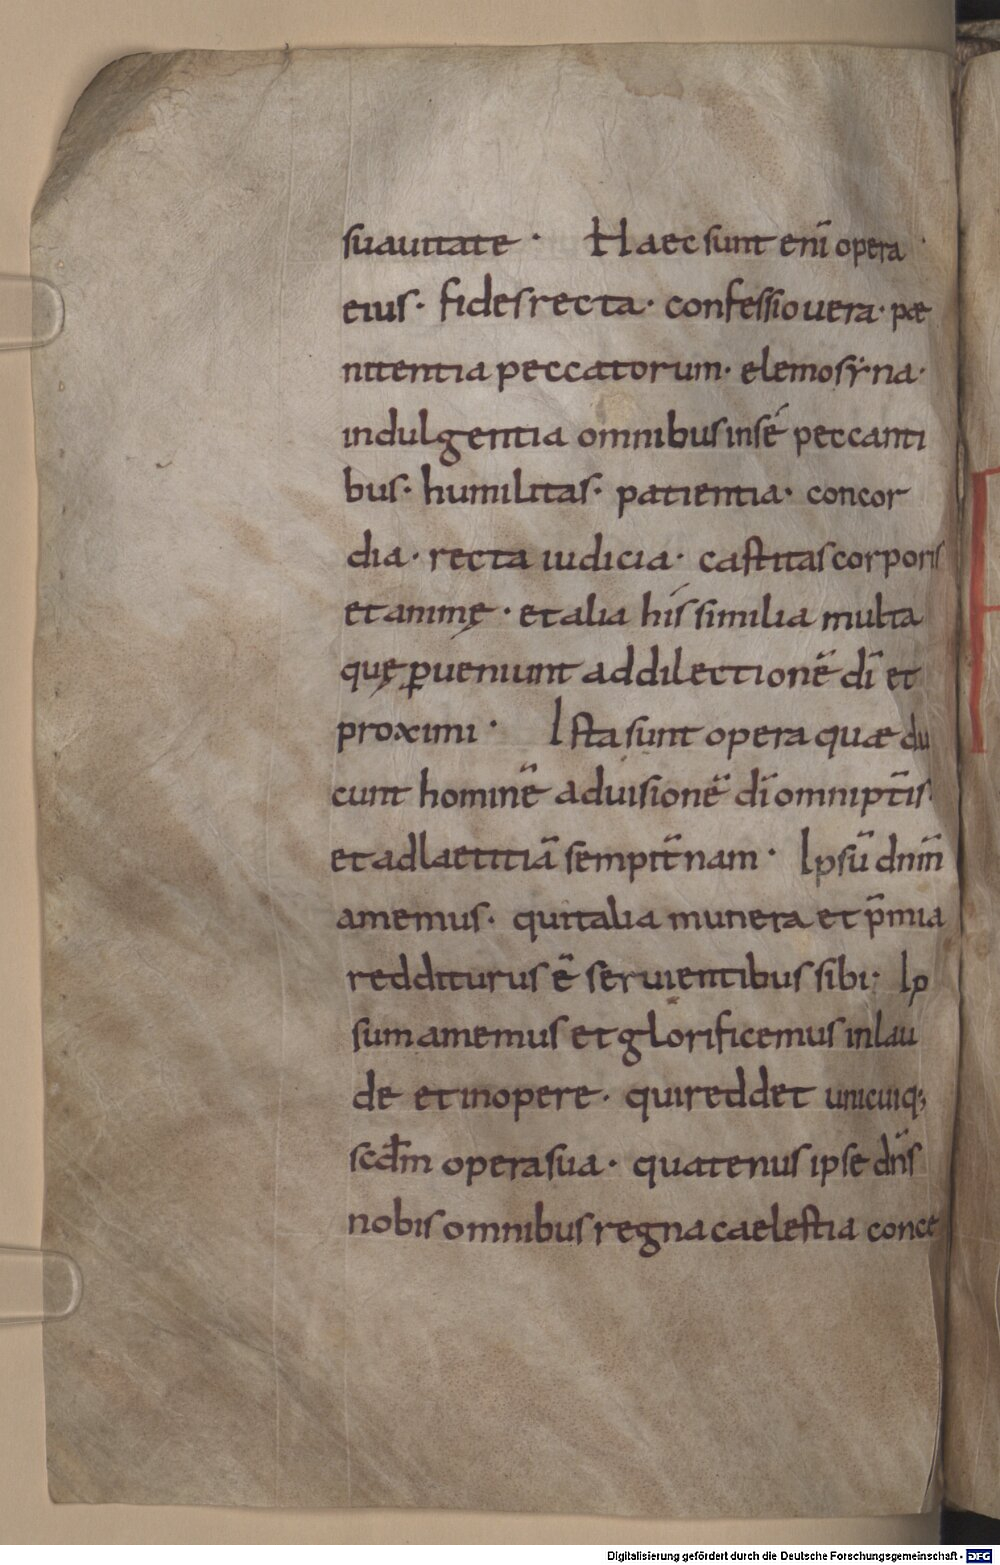 suauitate · Haec sunt enī opera
eius · fides recta · confessio uera · pæ
nitentia peccatorum · elemosẏna ·
indulgentia omnibus in sé peccanti
bus · humilitas · patientia · concor
dia · recta iudicia · castitas corporis
et animę · et alia his similia multa
quę ꝑueniunt ad dilectionē dī et
proximi · Ista sunt opera quæ du
cunt hominē ad uisionē dī omnipt̄is
et ad laetitiā sempit̄nam · Ipsū dn̄m
amemus · qui talia munera et p̄mia
redditurus ē seruientibus sibi · Ip
sum amemus et glorificemus in lau
de et in opere · qui reddet unicuiq;
scd̄m opera sua · quatenus ipse dn̄s
nobis omnibus regna caelestia conce
Digitalisierung gefördert durch die Deutsche Forschungsgemeinschaft - DFG